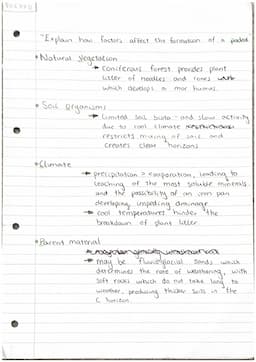 "Explain how factors affect the formation of a podzol
* Natural vegetation
→ Coniferous forest provides plant
litter of needles and cones
which develops a mor humus.
* Soil organisms
→ Limited soil biota - and slow activity
due to cool climate
restricts mixing of soil and
creates clear horizons
* Climate
→ precipitation > evaporation, leading to
leaching of the most soluble minerals
and the possibility of an iron pan
developing impeding drainage.
→ cool temperatures hinder the
breakdown of plant litter
* Parent material
→ may be fluvioglacial sands which
determines the rate of weathering, with
soft rocks which do not take long to
weather, producing thicker soils in the
C horizon.